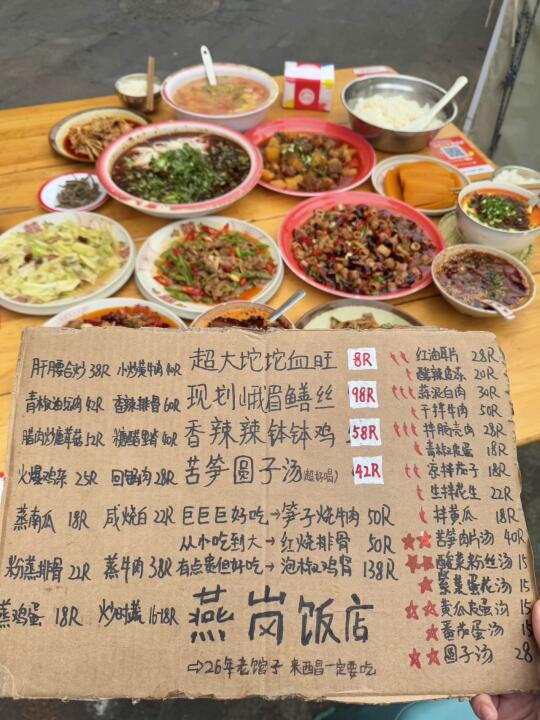 肝腰合炒 38R 小炒黄牛肉 40R
青椒油坑肉 42R 香辣排骨 60R
腊肉炒蘑菇 32R
火爆鸡杂 25R 回锅肉 28R
蒸南瓜 18R 咸烧白 22R
粉蒸排骨 22R 蒸牛肉 38R
蒸鸡蛋 18R 炒时蔬 16-18R
超大坨坨血旺 8R
现划峨眉鳝丝 98R
香辣辣钵钵鸡 58R
苦笋圆子汤(超好喝) 42R
巨巨巨好吃→笋子烧牛肉 50R
从小吃到大→红烧排骨 50R
有点贵但好吃→泡椒鸡肾 138R
燕岗饭店
⇨26年老馆子 来西昌一定要吃
红油耳片 28R
酸辣皮冻 20R
蒜泥白肉 30R
干拌牛肉 50R
拌脑壳肉 28R
青椒皮蛋 18R
凉拌茄子 18R
生拌花生 22R
拌黄瓜 18R
苦笋肉片汤 40R
酸菜粉丝汤 15
紫菜蛋花汤 15
黄瓜皮蛋汤 15
番茄蛋汤 15
圆子汤 28